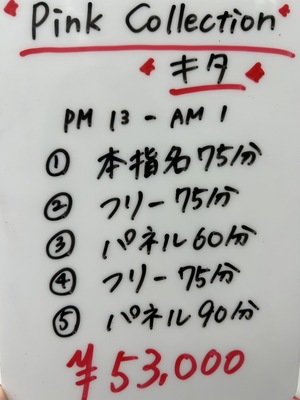 Pink Collection
キタ
PM 13 - AM 1
① 本指名75分
② フリー75分
③ パネル60分
④ フリー75分
⑤ パネル90分
¥53,000